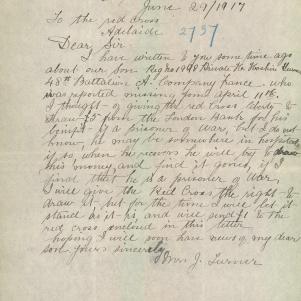 June 29/1917
To the red cross
Adelaide
2737
Dear Sir
I have written to you some time ago
about our Son Reg No 1998 Private
48th Battalion A. Company france, who
was reported missing from April 11th,
I thought of giving the red Cross liberty to
draw £5 from the London Bank for his
benefit if a prisoner of War, but I do not
know, he may be somewhere in hospital
if so when he recovers he will try to draw
this money and find it gone, if
final that he is a prisoner of War,
I will give the Red Cross the right to
draw it but for the time I will let it
stand as it is, and will send to the
red cross enclosed in this letter
hoping I will soon have news of my dear
son Yours sincerely
Mrs J. Turner